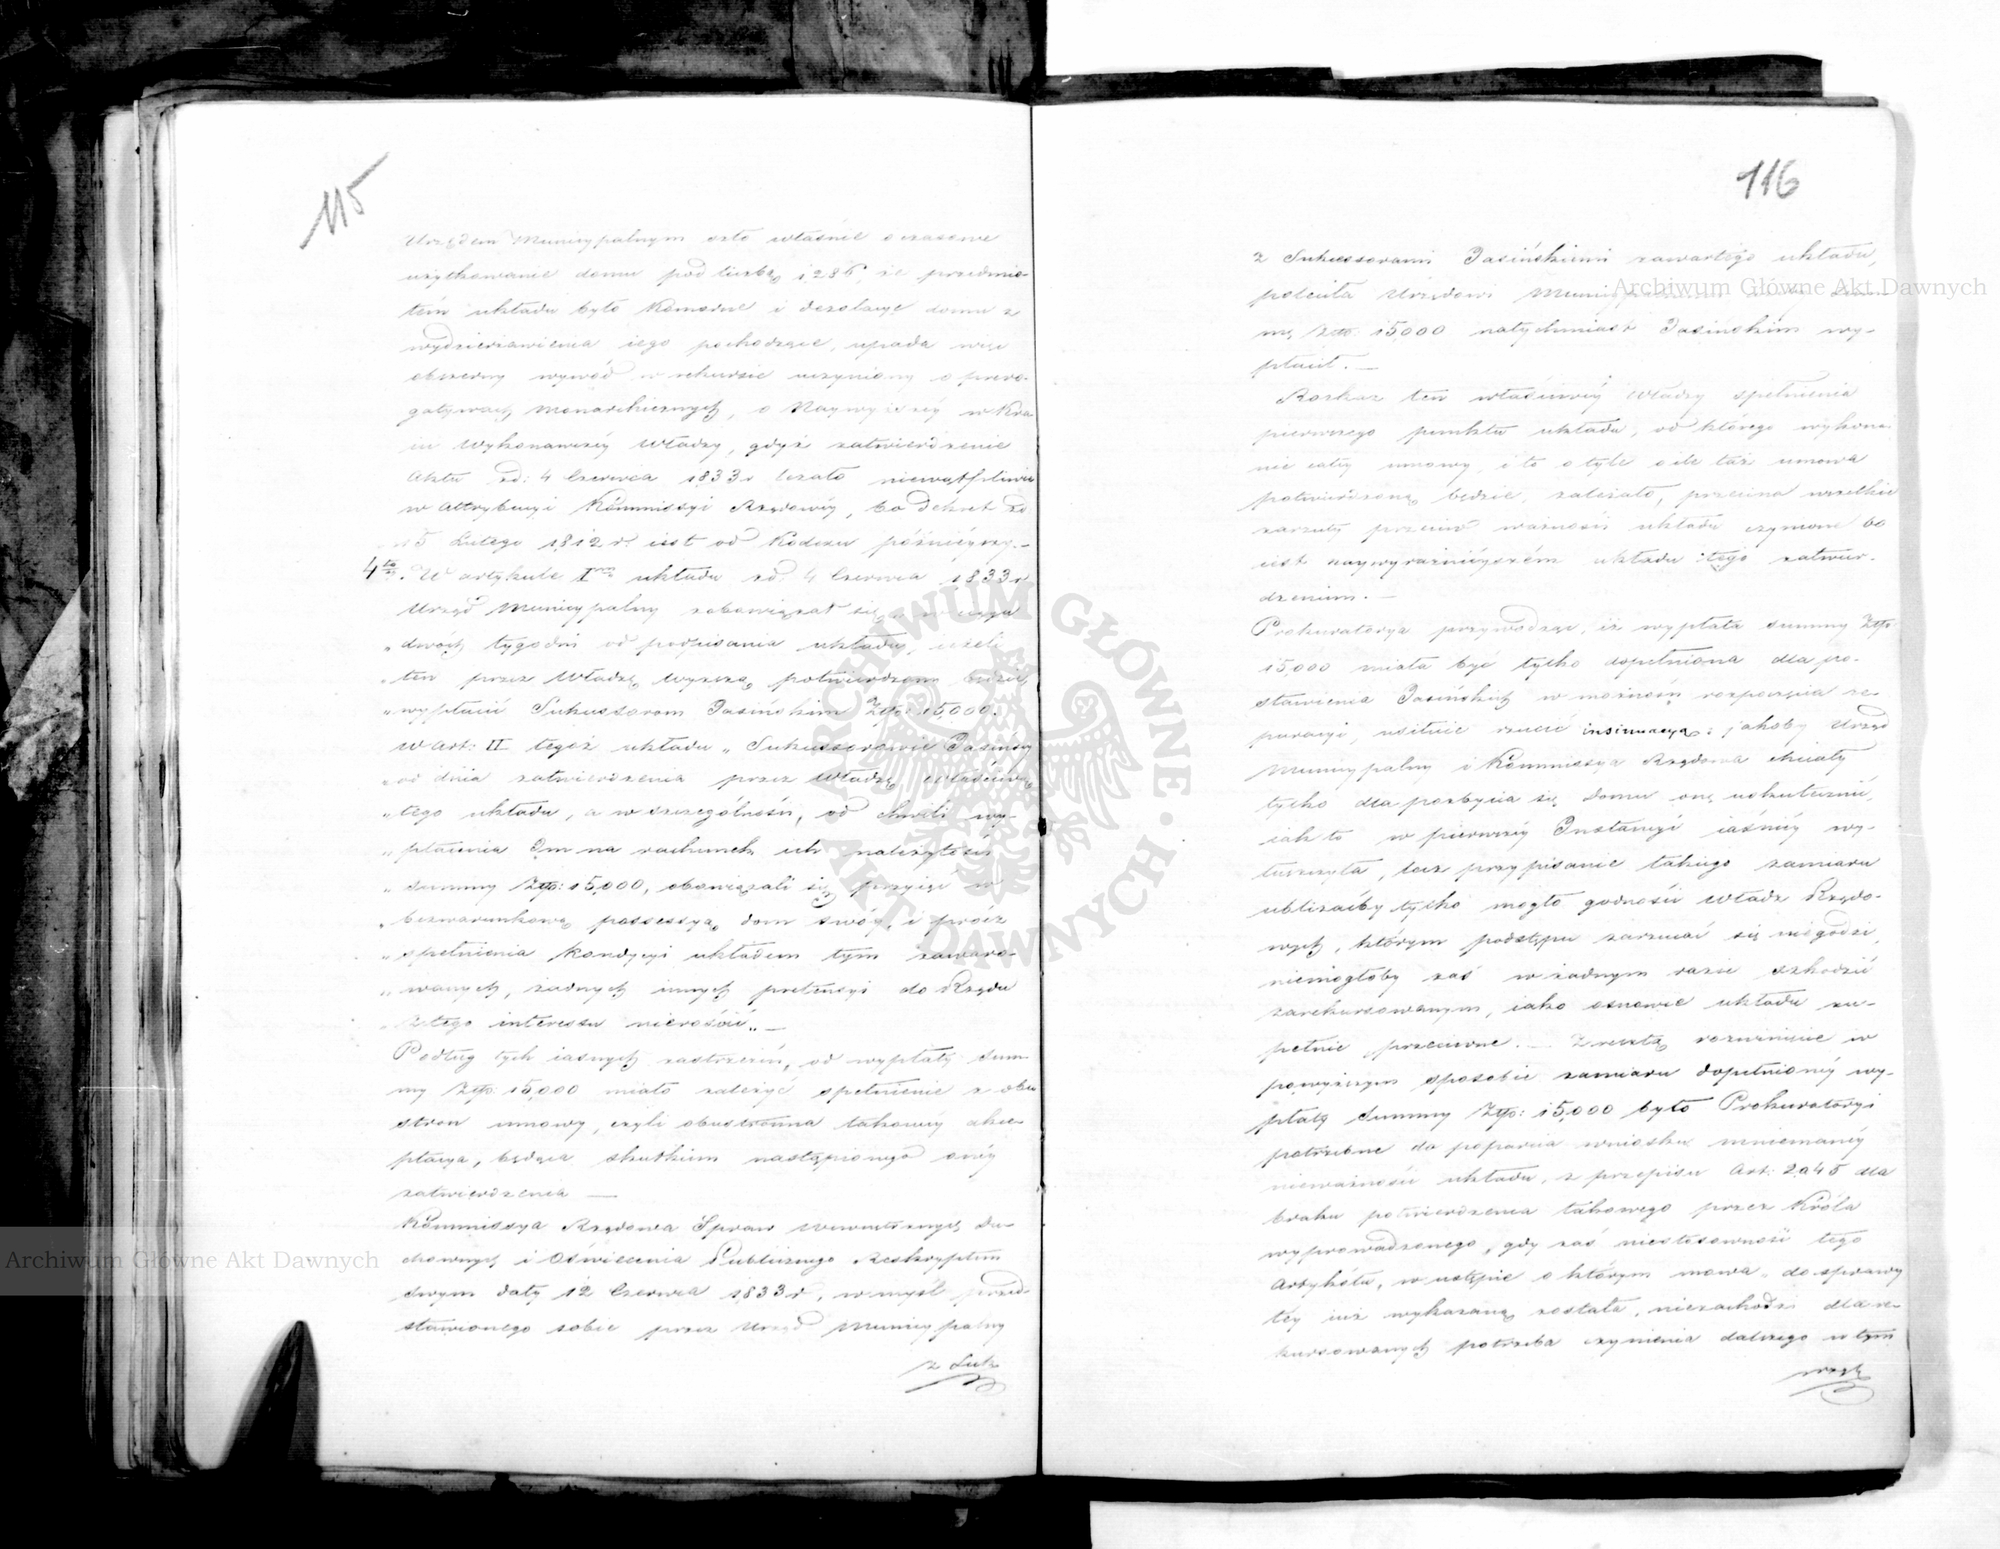 115
Urzędem Municypalnym szło właśnie o czasowe
użytkowanie domu pod liczbą 1286, że przedmio-
tem układu było Komorne i dezolacye domu z
wydzierżawienia iego pochodzące, upada więc
obszerny wywód w rekursie uczyniony o prero-
gatywach monarchicznych, o Naywyższéy w Kra-
iu Wykonawczéy Władzy, gdyż zatwierdzenie
Aktu zd: 4 Czerwca 1833 r leżało niewątpliwie
w attrybucyi Kommissyi Rządowéy, bo dekret zd
15 Lutego 1812 r. iest od Kodexu późnieyszy.-
4to. W artykule Iym układu zd 4 Czerwca 1833 r
Urząd Municypalny zobowiązał się „w ciągu
„dwóch tygodni od podpisania układu, ieżeli
„ten przez Władzę wyższą potwierdzony będzie,
„wypłacić Sukcessorom Jasińskim Złp: 15,000.
W art: II tegoż układu „Sukcessorowie Jasińscy
„od dnia zatwierdzenia przez Władzę właściwą
„tego układu, a w szczególności, od chwili wy-
„płacenia Im na rachunek ich należytości
„Summy Złp: 15,000, obowiązali się przyiąć w
„bezwarunkową possessyą dom swóy, i prócz
„spełnienia kondycyi układem tym zawaro-
„wanych, żadnych innych pretensyi do Rządu
„z tego interessu nierościć„ —
Podług tych iasnych zastrzeżeń, od wypłaty Sum-
my Złp: 15,000 miało zależyć spełnienie z obu
stron umowy, czyli obustronna takowéy akce-
ptacya, będąca skutkiem nastąpionego onéy
zatwierdzenia —
Kommissya Rządowa Spraw Wewnętrznych Du-
chownych i Oświecenia Publicznego Reskryptem
Swym daty 12 Czerwca 1833 r, w myśl przed-
stawionego sobie przez Urząd Municypalny
z Suk
116
z Sukcessorami Jasińskiemi zawartego układu,
poleciła Urzędowi
mę Złp: 15,000 natychmiast Jasińskim wy-
płacił. —
Rozkaz ten właściwéy Władzy spełnienia
pierwszego punktu układu, od którego wykona-
nie całéy umowy, i to o tyle o ile taż umowa
potwierdzoną będzie, zależało, przecina wszelkie
zarzuty przeciw ważności układu czynione bo
iest naywyraźnieyszém układu tego zatwier-
dzeniem. —
Prokuratorya przywodząc, iż wypłata Summy Złp
15,000 miała być tylko dopełniona dla po-
stawienia Jasińskich w możności rozpoczęcia re-
paracyi, usiłuie rzucić insinuacyą: jakoby Urząd
Municypalny i Kommissya Rządowa chciały
tylko dla pozbycia się domu onę uskutecznić,
iak to w pierwszéy Instancyi iaśniéy wy-
łuszczyła, lecz przypisanie takiego zamiaru
ubliżaćby tylko mogło godności Władz Rządo-
wych, którym podstępu zarzucać się niegodzi,
niemogłoby zaś w żadnym razie szkodzić
zarekursowanym, iako osnowie układu zu-
pełnie przeciwne. — Zresztą rozwinięcie w
powyższym sposobie zamiaru dopełnionéy wy-
płaty Summy Złp: 15,000 było Prokuratoryi
potrzebne do poparcia wniosku mniemanéy
nieważności układu, z przepisu Art: 2045 dla
braku potwierdzenia takowego przez Króla
wyprowadzonego, gdy zaś niestosowność tego
Artykółu, w ustępie o którym mowa, do sprawy
téy iuż wykazaną została, niezachodzi dla re-
kursowanych potrzeba czynienia dalszego w tym
wzgl
Archiwum Główne Akt Dawnych
Archiwum Główne Akt Dawnych
ARCHIWUM GŁÓWNE AKT DAWNYCH